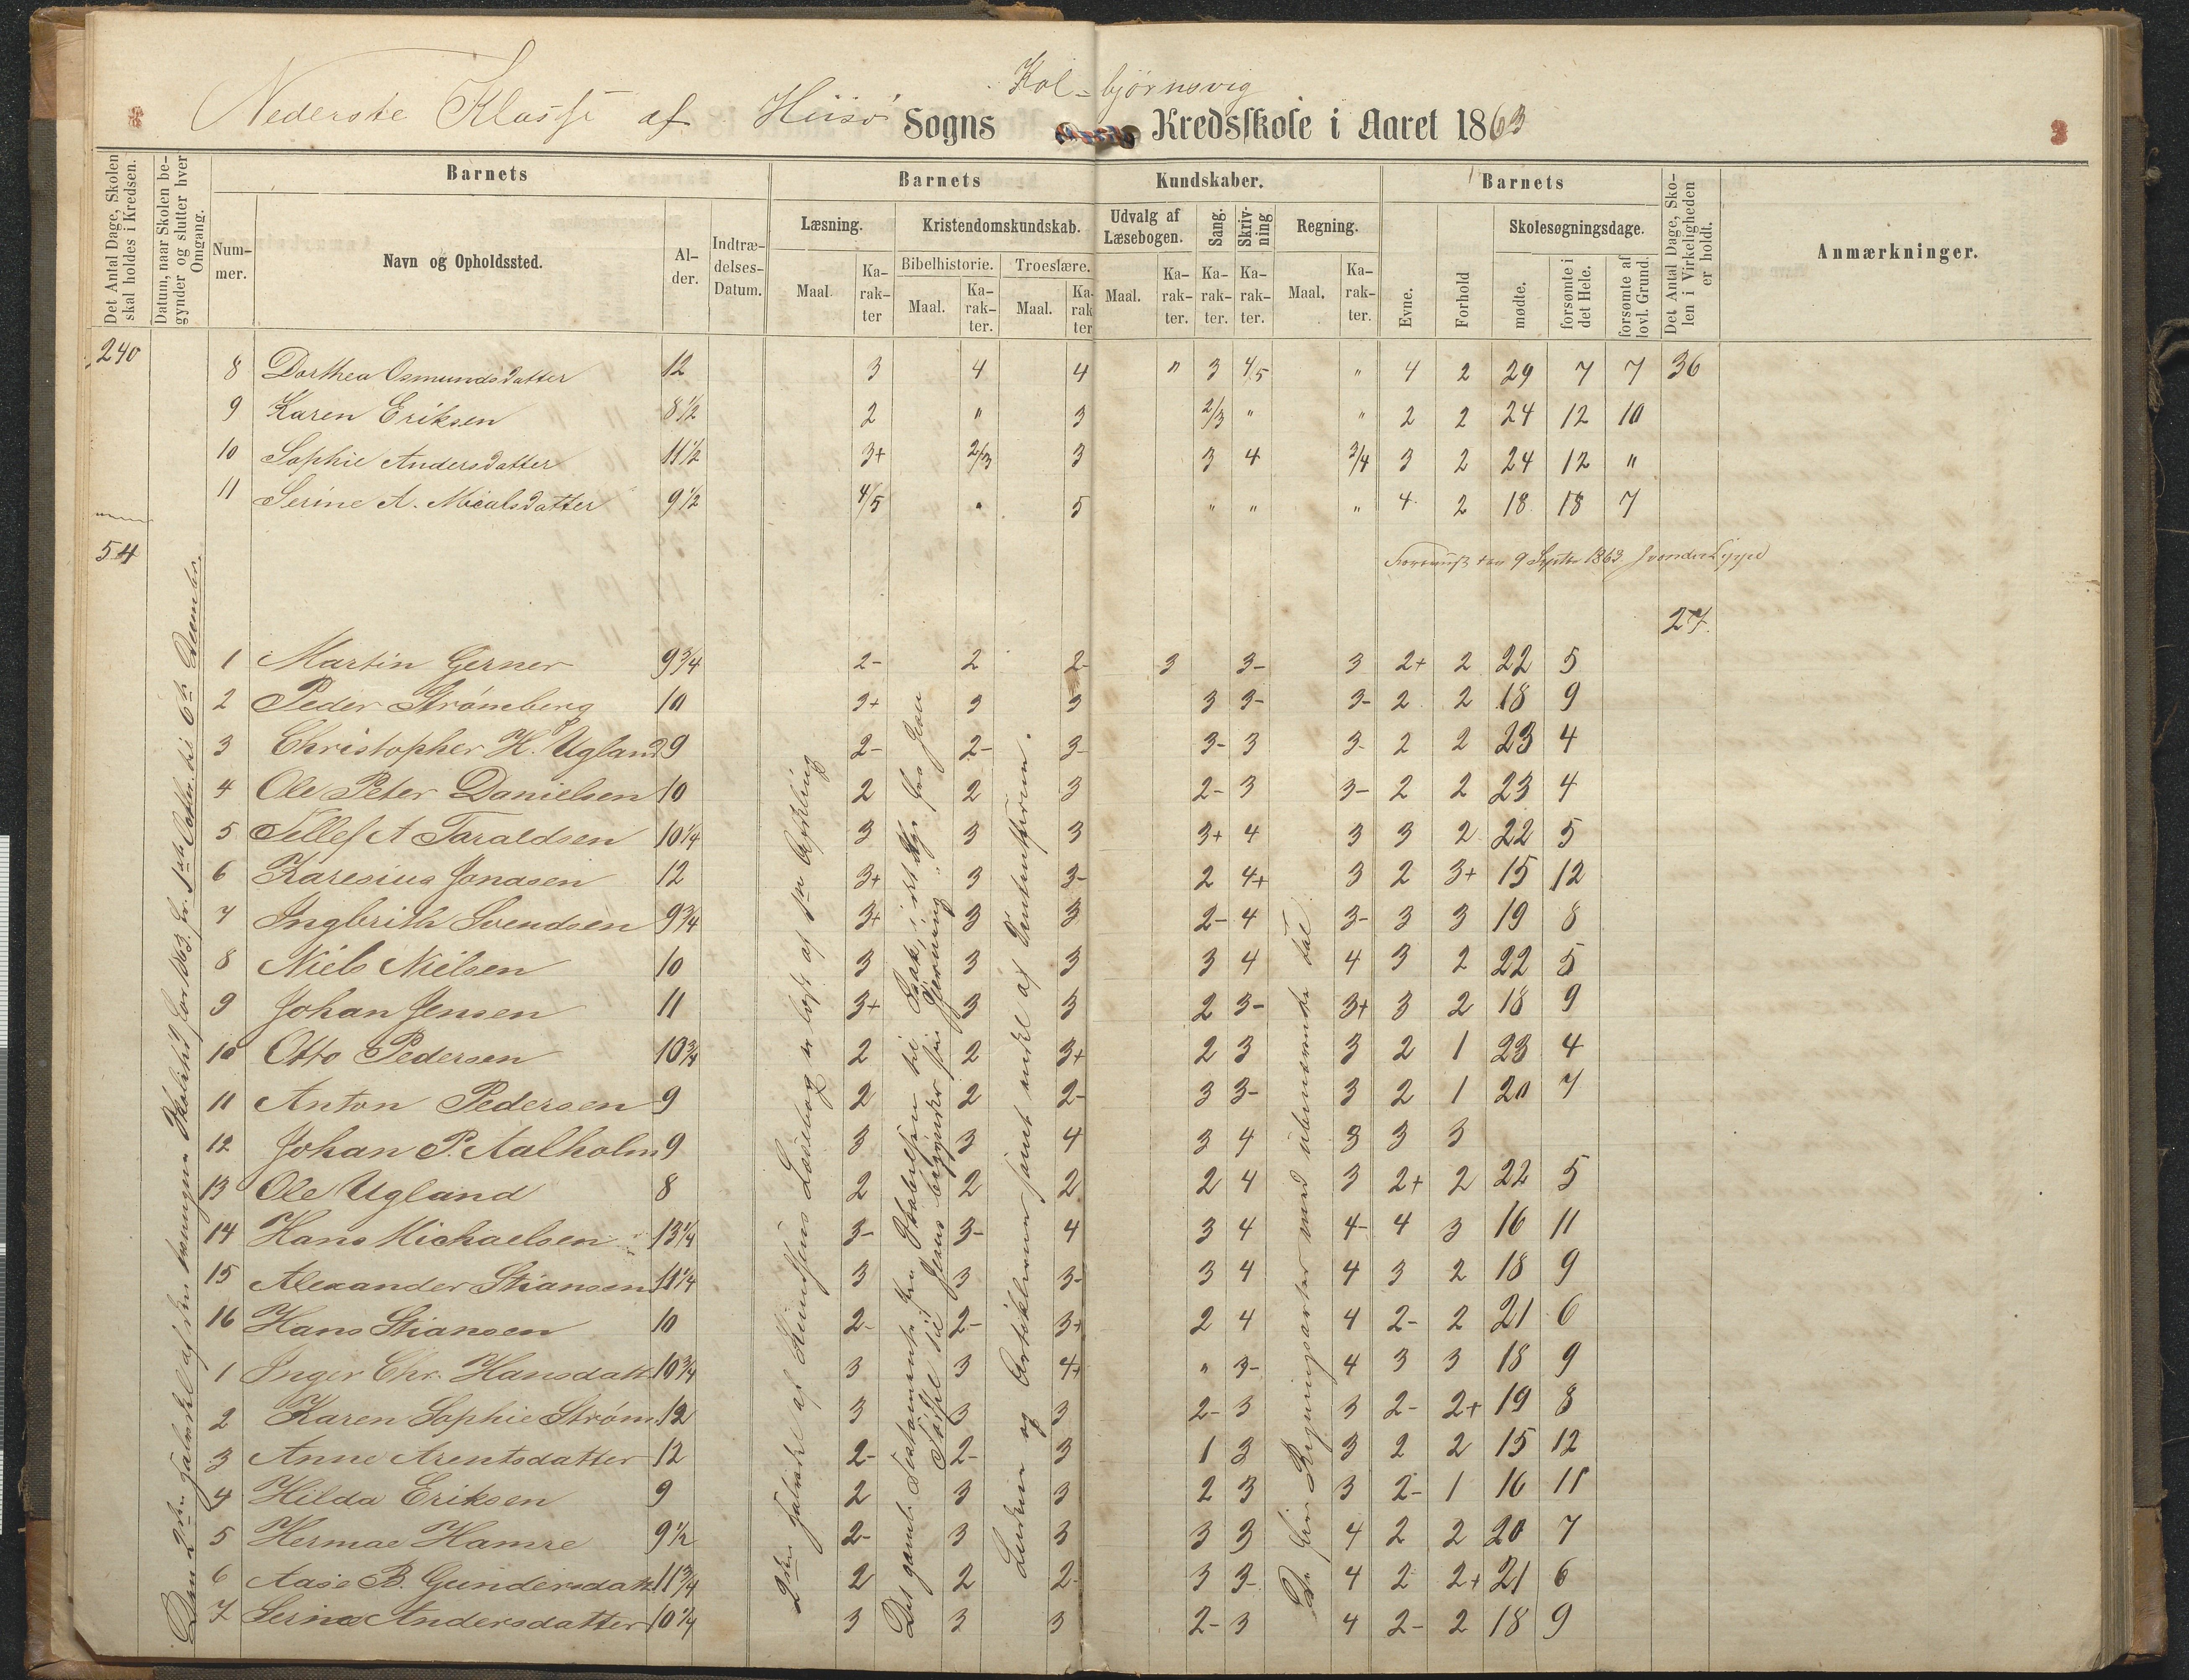 Nederste Klasse af Hiisø Sogns Kolbjørnsvig Kredsskole i Aaret 1863
3 3
Det Antal Dage, Skolen skal holdes i Kredsen.
Datum, naar Skolen begynder og slutter hver Omgang.
Barnets Barnets Kundskaber. Barnets
Nummer. Navn og Opholdssted. Alder. Indtrædelses-Datum.
Læsning. Kristendomskundskab. Udvalg af Læsebogen. Sang. Skrivning Regning.
Bibelhistorie. Troeslære.
Maal. Karakter Maal. Karakter. Maal. Karakter Maal. Karakter. Karakter. Karakter. Maal. Karakter.
Evne. Forhold Skolesøgningsdage. mødte. forsømte i det Hele. forsømte af lovl. Grund.
Det Antal Dage, Skolen i Virkeligheden er holdt.
Anmærkninger.
240
8 Dorthea Osmundsdatter 12 3 4 4 " 3 4/5 " 4 2 29 7 7 36
9 Karen Eriksen 8 1/2 2 " 3 2/3 " " 2 2 24 12 10
10 Sophie Andersdatter 11 1/2 3+ 2/3 3 3 4 3/4 3 2 24 12 "
11 Serine A. Micalsdatter 9 1/2 4/5 " 5 " " " 4 2 18 18 7
54
9 Septbr 1863
27.
1 Martin Gerner 9 3/4 2- 2 2- 3 3- 3 2+ 2 22 5
2 Peder Strømberg 10 3+ 3 3 3 3- 3- 2 2 18 9
3 Christopher H. Ugland 9 2- 2- 3- 3- 3 3- 2 2 23 4
4 Ole Peter Danielsen 10 2 2 3 2- 3 3- 2 2 23 4
5 Tellef A Taraldsen 10 1/4 3 3 3 3+ 4 3 3 2 22 5
6 Karesius Jonasen 12 3+ 3 3- 2 4+ 3 2 3+ 15 12
7 Ingbrith Svendsen 9 3/4 3+ 3 3 2- 4 3- 3 3 19 8
8 Niels Nielsen 10 3 3 3 3 4 4 3 2 22 5
9 Johan Jensen 11 3+ 3 3 2 3- 3+ 3 2 18 9
10 Otto Pedersen 10 3/4 2 2 3+ 2 3 3 2 1 23 4
11 Anton Pedersen 9 2 2 2- 3 3- 3 2 1 20 7
12 Johan P. Aalholm 9 3 3 4 3 4 3 3 3
13 Ole Ugland 8 2 2 2 2 4 3 2+ 2 22 5
14 Hans Michaelsen 13 1/4 3- 3- 4 3 4 4- 4 3 16 11
15 Alexander Stiansen 11 1/4 3 3 3- 3 4 4 3 2 18 9
16 Hans Stiansen 10 2- 2- 3+ 2 4 4 2- 2 21 6
1 Inger Chr. Hansdatt 10 3/4 3 3 4+ " 3- 4 3 3 18 9
2 Karen Sophie Strøm. 12 3 3 3 2- 3 3 2- 2+ 19 8
3 Anne Arentsdatter 12 2- 2- 3 1 3 3 2 2 15 12
4 Hilda Eriksen 9 2 3 3 2 3 3 2- 1 16 11
5 Hermae Hamre 9 1/2 2- 3 3 3 3 4 2 2 20 7
6 Aase B. Gundersdatt 11 3/4 2 2 2- 3 3- 4 2 2+ 21 6
7 Serine Andersdatter 10 1/4 3 3 3 2- 3 4 2- 2 18 9
Den 2den Halvdel af den tvungne Skoletid for 1863 fr. 1ste Octbr. til 6te December.
2den Halvdel af Læsebog er læst af 1ste Afdeling
Det gamle Testamente fra Skabelsen til Isak, i det Nye fra Jesu
Daab til Jesus begynder sin Gjerning."
Lærdom og Artiklerne samt endel af
De fire Regningsarter med ubenævnte Tal